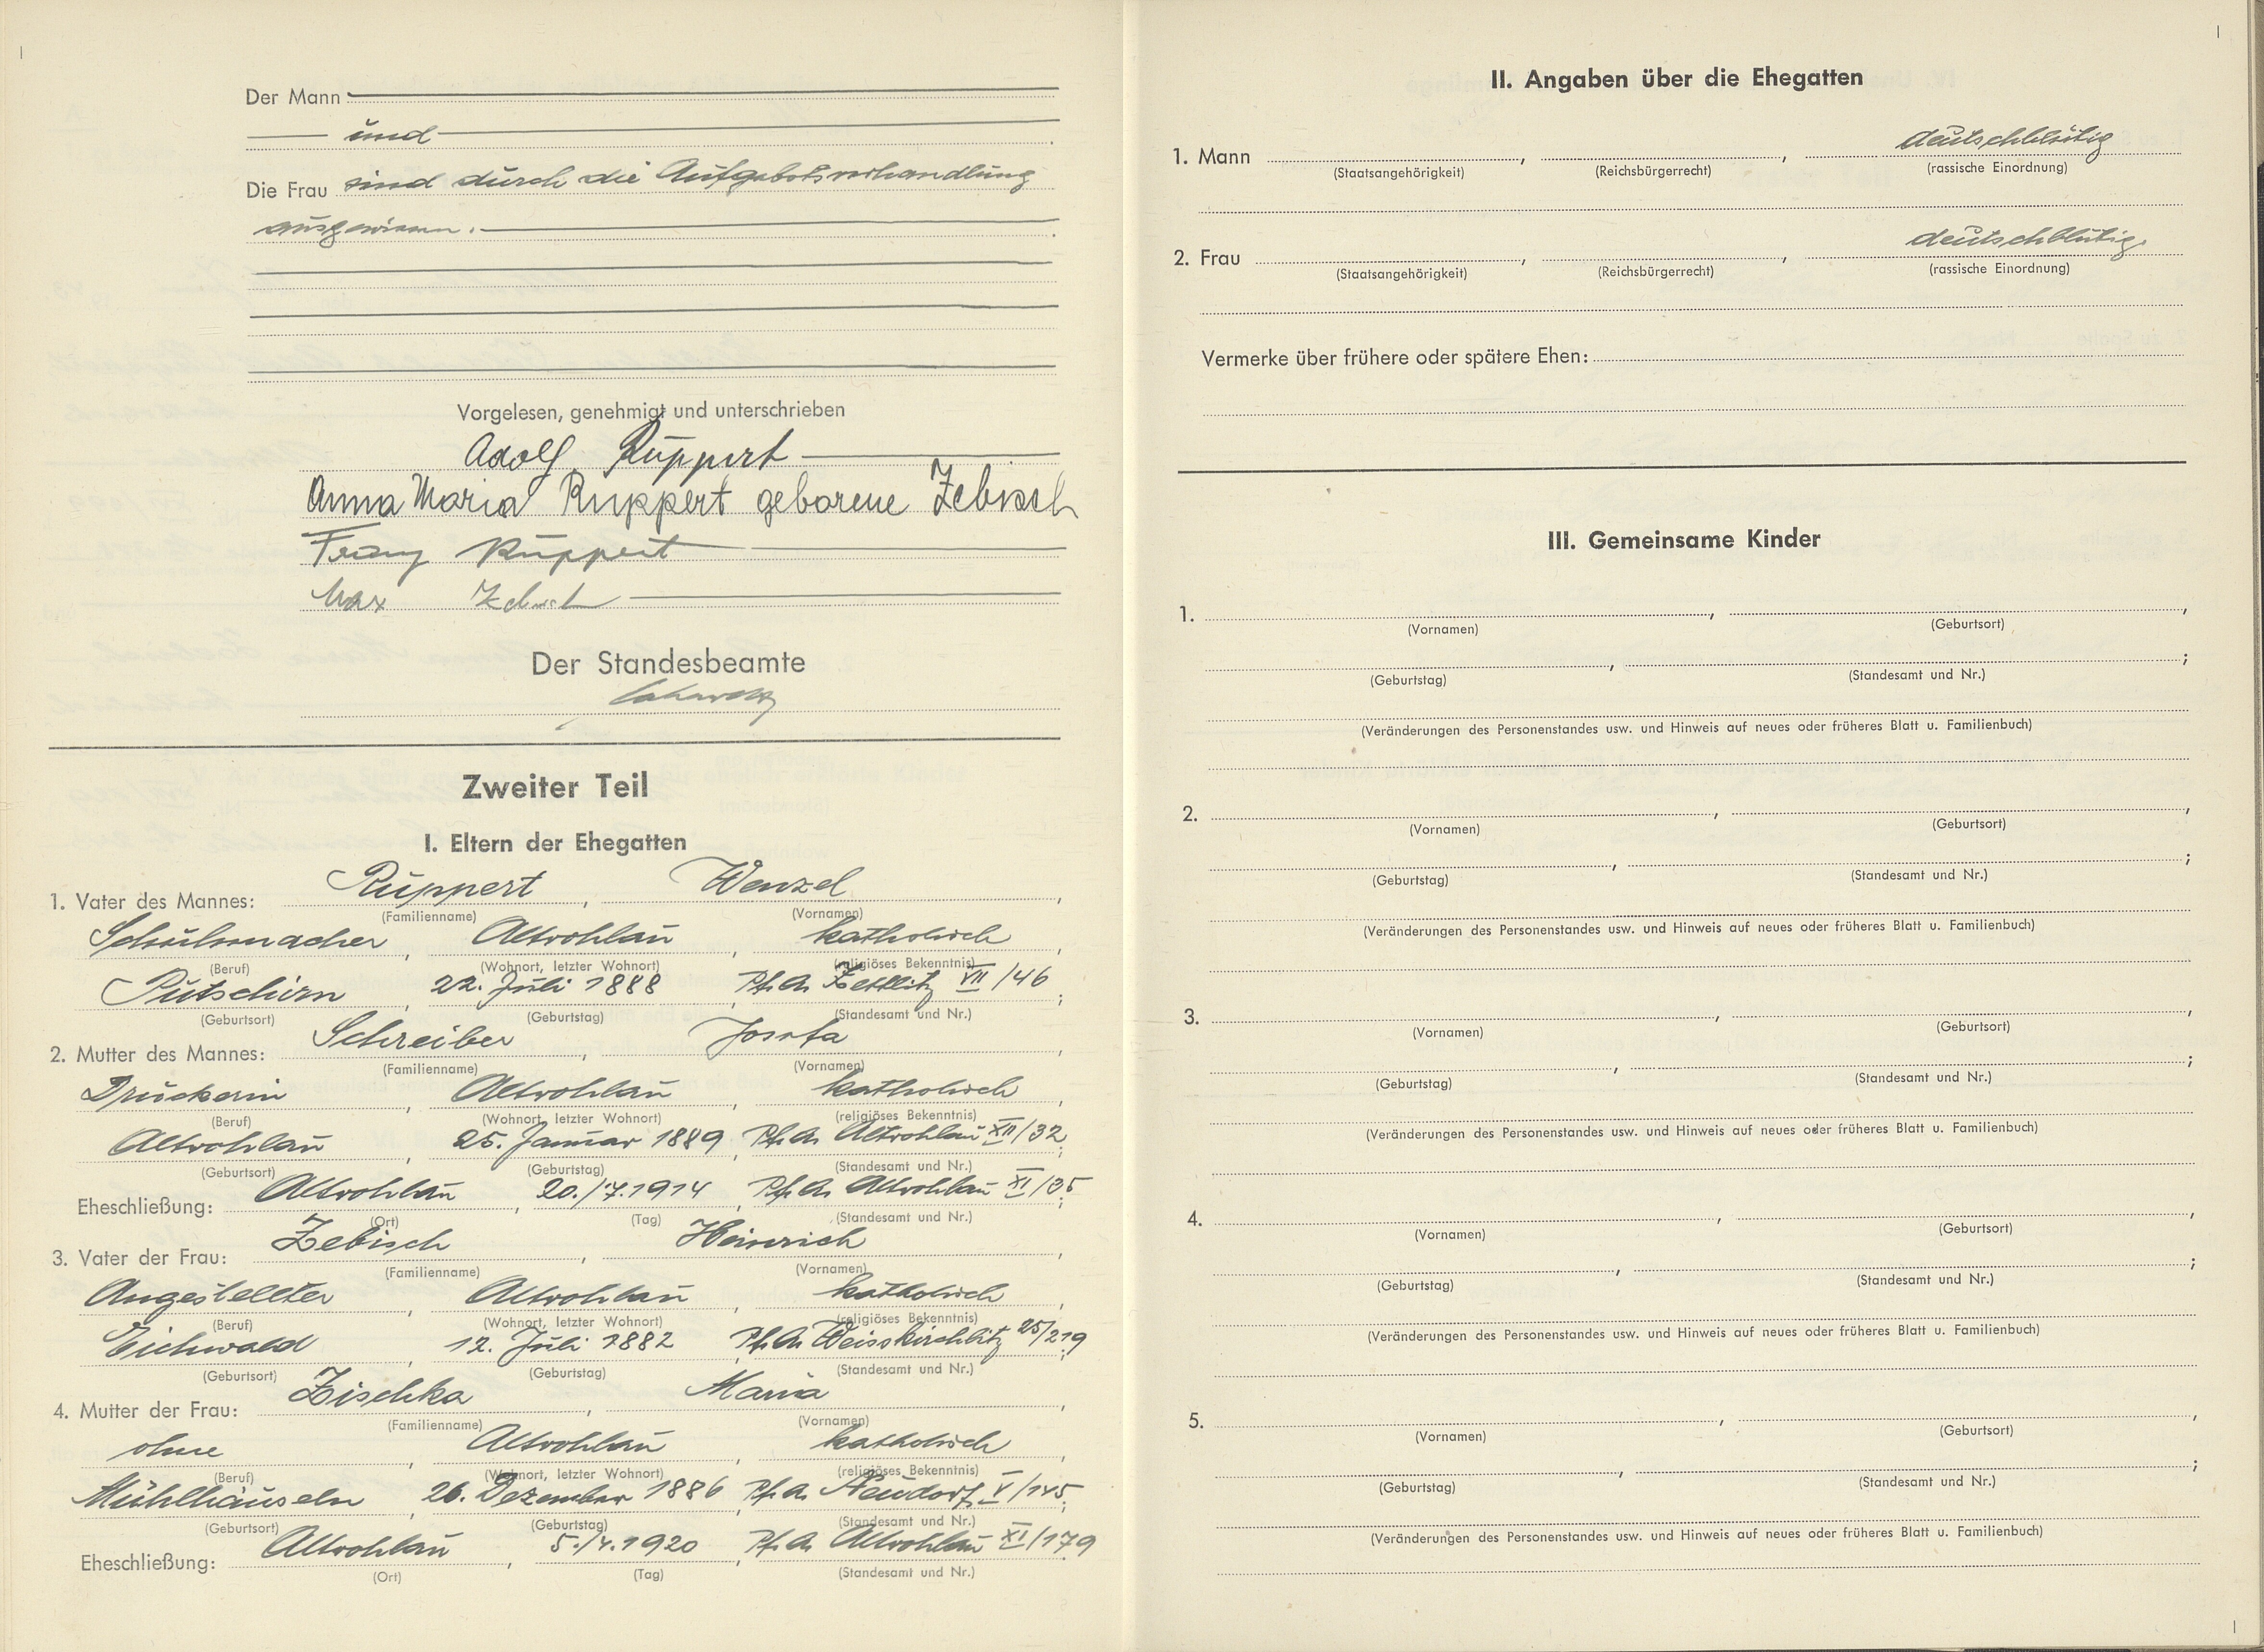 Der Mann
und
Die Frau sind durch die Aufgebotsverhandlung
ausgewiesen.
Vorgelesen, genehmigt und unterschrieben
Adolf Ruppert
Anna Maria Ruppert geborene Zebisch
Franz Ruppert
Max Zebisch
Der Standesbeamte
Zweiter Teil
I. Eltern der Ehegatten
1. Vater des Mannes: Ruppert, Wenzel,
(Familienname) (Vornamen)
Schuhmacher, Altrohlau, katholisch,
(Beruf) (Wohnort, letzter Wohnort) (religiöses Bekenntnis)
Putschirn, 22. Juli 1888, Pf.A. Zettlitz VII/46;
(Geburtsort) (Geburtstag) (Standesamt und Nr.)
2. Mutter des Mannes: Schreiber, Josefa,
(Familienname) (Vornamen)
Druckerin, Altrohlau, katholisch,
(Beruf) (Wohnort, letzter Wohnort) (religiöses Bekenntnis)
Altrohlau, 25. Januar 1889, Pf.A. Altrohlau XII/32;
(Geburtsort) (Geburtstag) (Standesamt und Nr.)
Eheschließung: Altrohlau, 20./7.1914, Pf.A. Altrohlau XI/35;
(Ort) (Tag) (Standesamt und Nr.)
3. Vater der Frau: Zebisch, Heinrich,
(Familienname) (Vornamen)
Angestellter, Altrohlau, katholisch,
(Beruf) (Wohnort, letzter Wohnort) (religiöses Bekenntnis)
Eichwald, 12. Juli 1882, Pf.A. Weisskirchlitz 25/219;
(Geburtsort) (Geburtstag) (Standesamt und Nr.)
4. Mutter der Frau: Zischka, Maria,
(Familienname) (Vornamen)
ohne, Altrohlau, katholisch,
(Beruf) (Wohnort, letzter Wohnort) (religiöses Bekenntnis)
Mühlhäuseln, 26. Dezember 1886, Pf.A. Neudorf V/145;
(Geburtsort) (Geburtstag) (Standesamt und Nr.)
Eheschließung: Altrohlau, 5./4.1920, Pf.A. Altrohlau XI/179
(Ort) (Tag) (Standesamt und Nr.)
II. Angaben über die Ehegatten
1. Mann , , deutschblütig
(Staatsangehörigkeit) (Reichsbürgerrecht) (rassische Einordnung)
2. Frau , , deutschblütig.
(Staatsangehörigkeit) (Reichsbürgerrecht) (rassische Einordnung)
Vermerke über frühere oder spätere Ehen:
III. Gemeinsame Kinder
1. , ,
(Vornamen) (Geburtsort)
, ;
(Geburtstag) (Standesamt und Nr.)
(Veränderungen des Personenstandes usw. und Hinweis auf neues oder früheres Blatt u. Familienbuch)
2. , ,
(Vornamen) (Geburtsort)
, ;
(Geburtstag) (Standesamt und Nr.)
(Veränderungen des Personenstandes usw. und Hinweis auf neues oder früheres Blatt u. Familienbuch)
3. , ,
(Vornamen) (Geburtsort)
, ;
(Geburtstag) (Standesamt und Nr.)
(Veränderungen des Personenstandes usw. und Hinweis auf neues oder früheres Blatt u. Familienbuch)
4. , ,
(Vornamen) (Geburtsort)
, ;
(Geburtstag) (Standesamt und Nr.)
(Veränderungen des Personenstandes usw. und Hinweis auf neues oder früheres Blatt u. Familienbuch)
5. , ,
(Vornamen) (Geburtsort)
, ;
(Geburtstag) (Standesamt und Nr.)
(Veränderungen des Personenstandes usw. und Hinweis auf neues oder früheres Blatt u. Familienbuch)